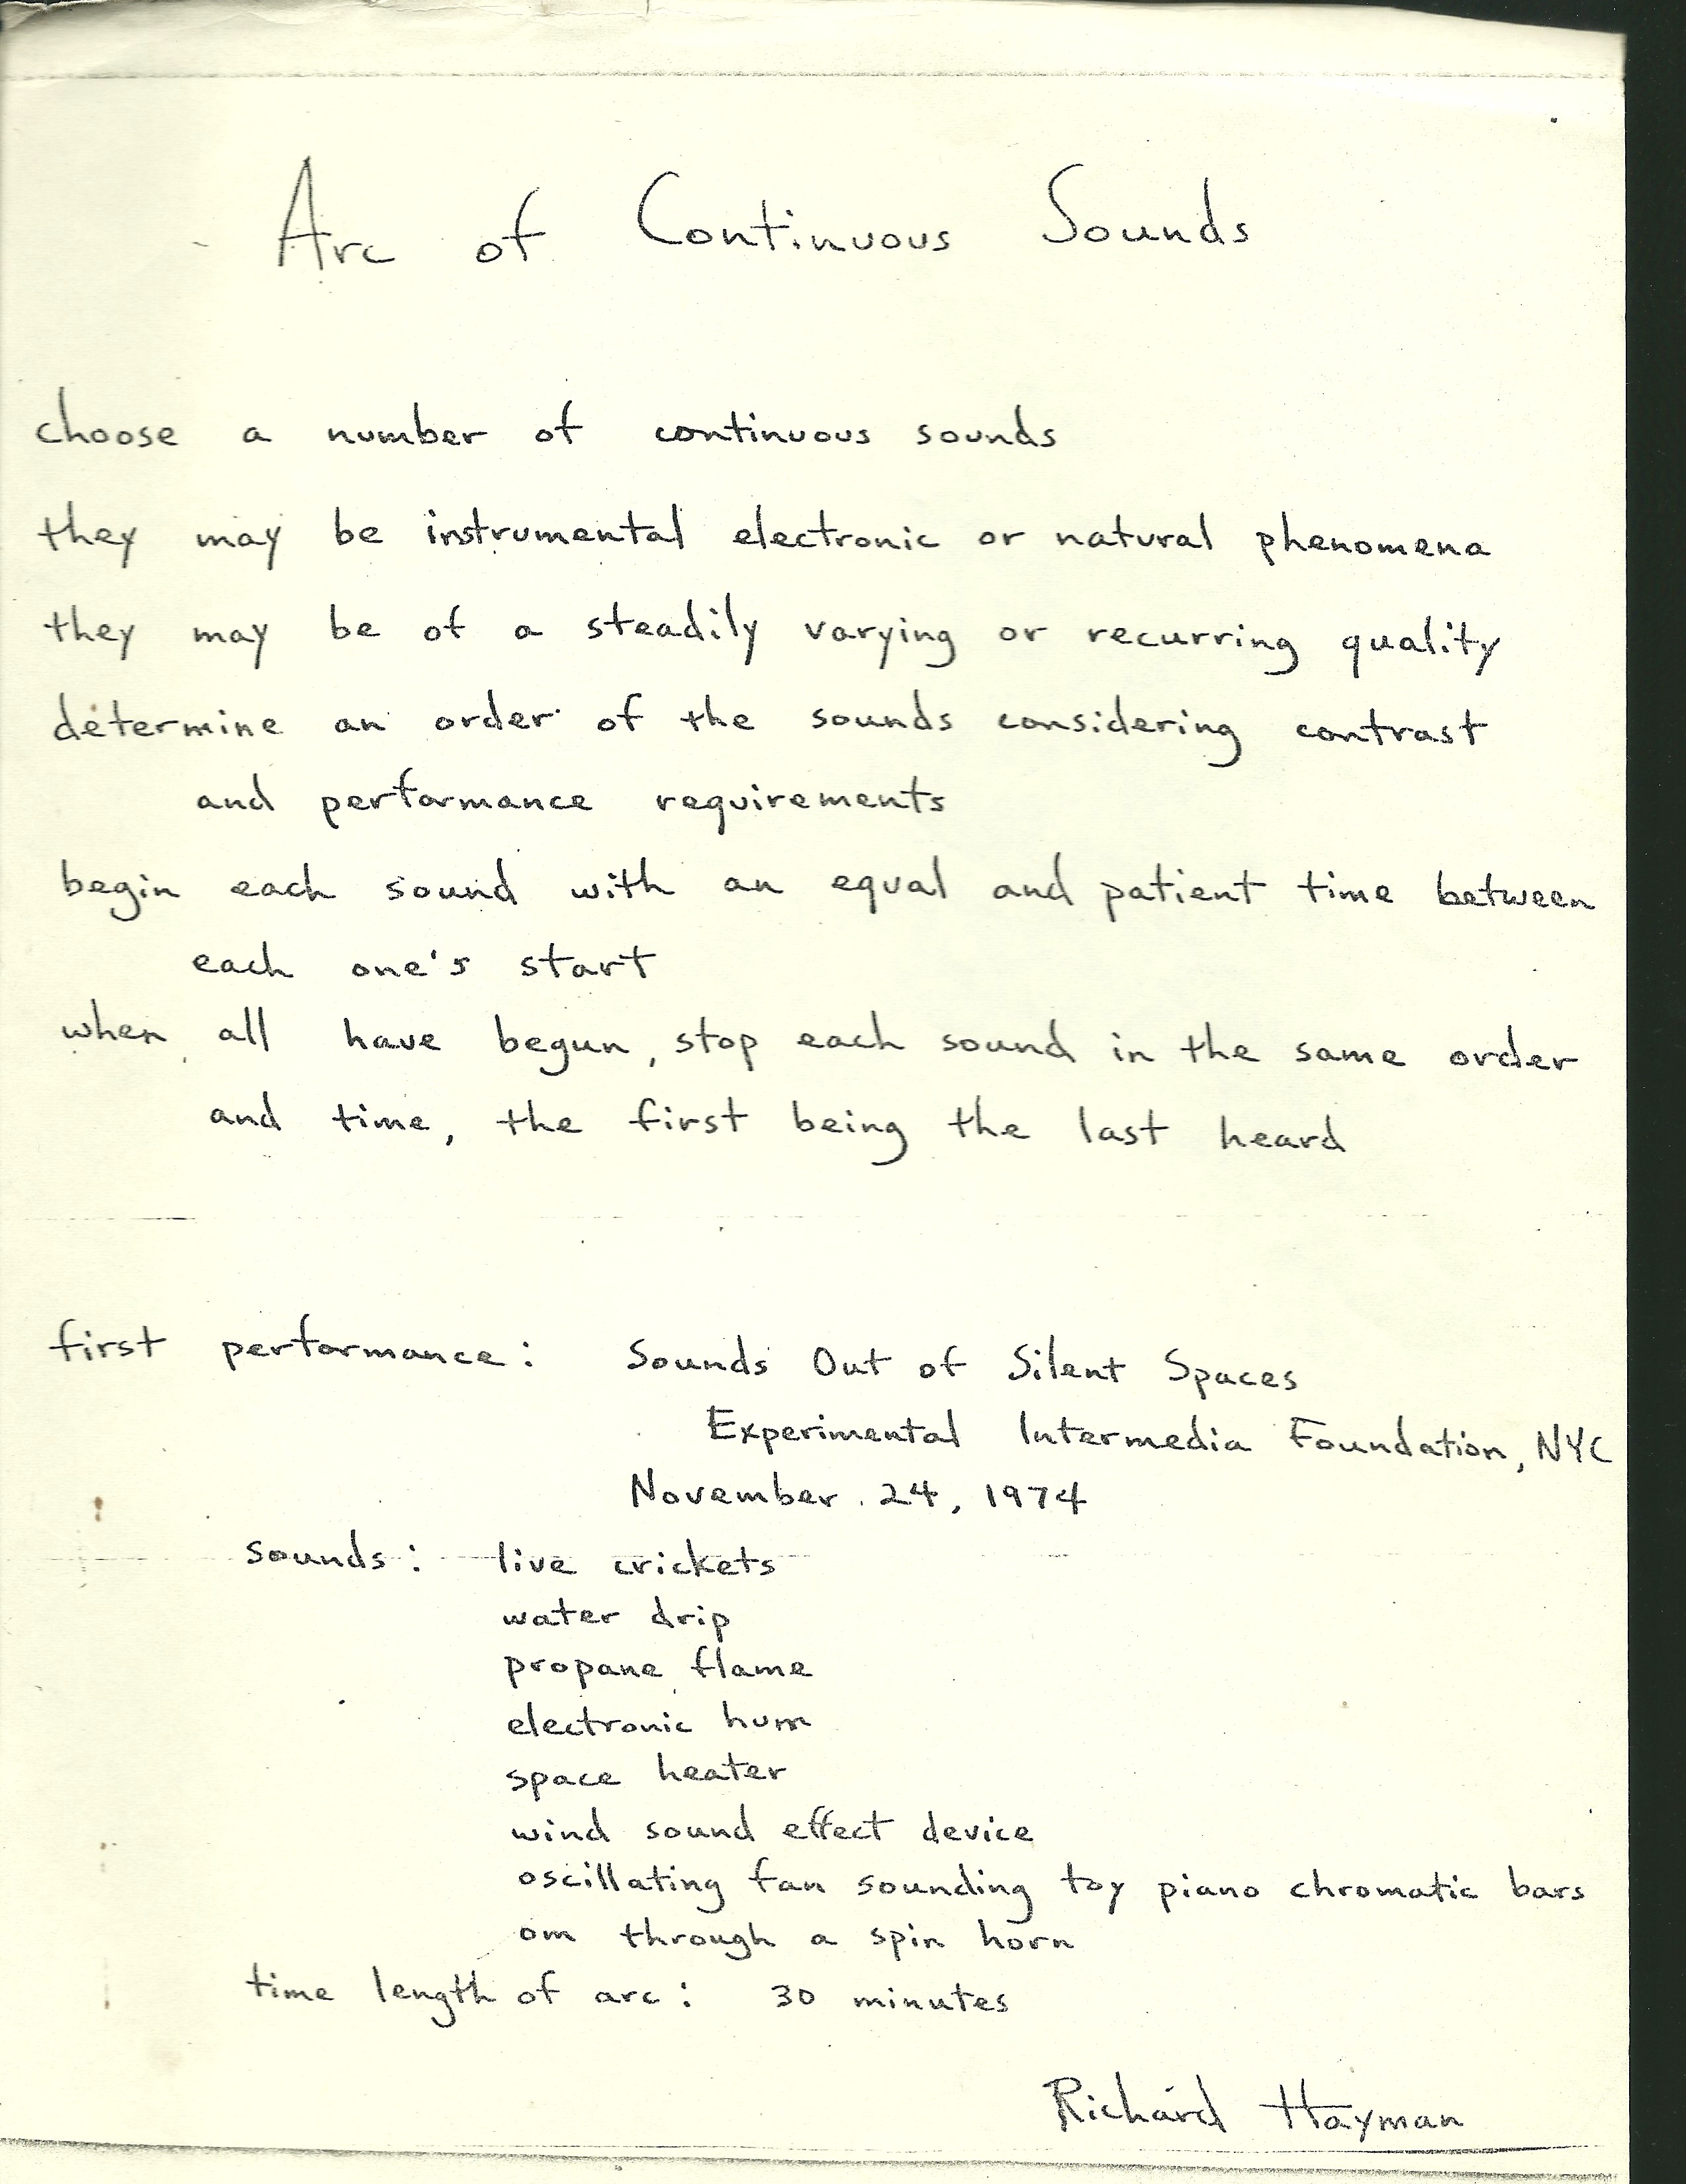 Arc of Continuous Sounds
choose a number of continuous sounds
they may be instrumental electronic or natural phenomena
they may be of a steadily varying or recurring quality
determine an order of the sounds considering contrast
and performance requirements
begin each sound with an equal and patient time between
each one's start
when all have begun, stop each sound in the same order
and time, the first being the last heard
first performance: Sounds Out of Silent Spaces
Experimental Intermedia Foundation, NYC
November 24, 1974
sounds: live crickets
water drip
propane flame
electronic hum
space heater
wind sound effect device
oscillating fan sounding toy piano chromatic bars
om through a spin horn
time length of arc: 30 minutes
Richard Hayman